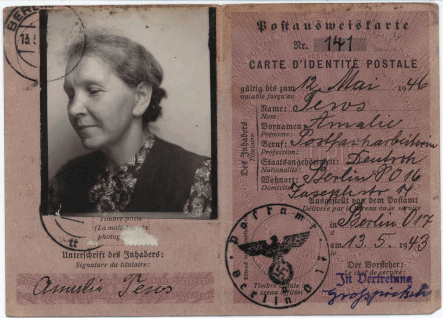 BERLIN
13.5
Timbre-poste
(La moi
photog
tt
Unterschrift des Inhabers:
Signature du titulaire:
Amalie Pews
Postausweiskarte
Nr. 141
CARTE D'IDENTITÉ POSTALE
gültig bis zum 12. Mai 1946
valable jusqu'au
Des Inhabers
Titulaire
Name: Pews
Nom:
Vornamen: Amalie
Prénoms:
Beruf: Postfacharbeiterin
Profession:
Staatsangehörigkeit: Deutsch
Nationalité:
Wohnort: Berlin O 16
Domicile:
Ausgestellt von dem Postamt
Délivrée par le bureau de poste
in Berlin O 17
am 13. 5. 1943
Postamt
Berlin O 17
Der Vorsteher:
Le chef de service:
In Vertretung